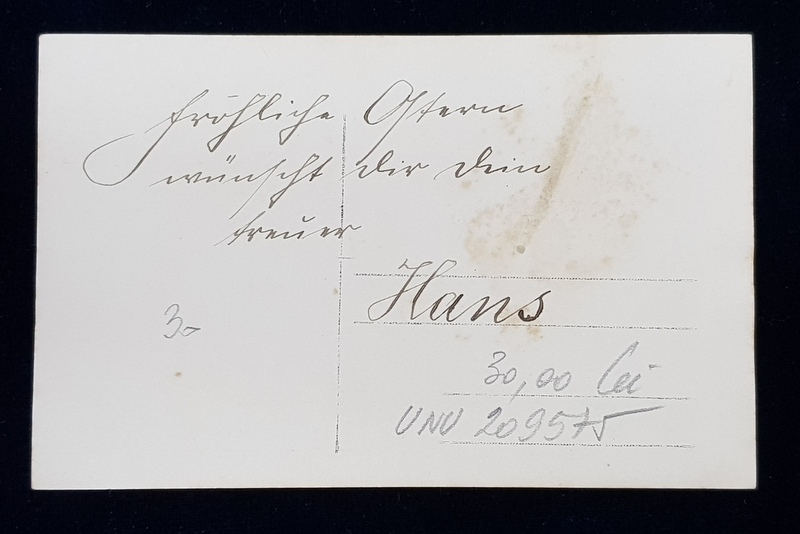 fröhliche Ostern
wünscht dir dein
treuer
Hans
3.-
30,00 lei
UNU 209575